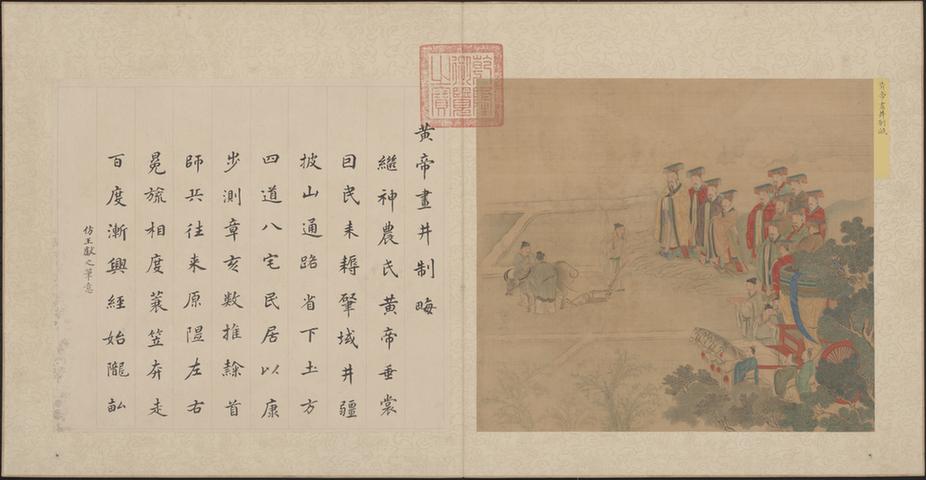 黃帝畫井制畝
乾隆御覽之寶
黃帝畫井制畮
繼神農氏黃帝垂裳
囙民耒耨肇域井疆
披山通路省下土方
四道八宅民居以康
步測章亥數推隸首
師兵往來原隰左右
冕旒相度蓑笠奔走
百度漸興經始隴畝
仿王獻之筆意